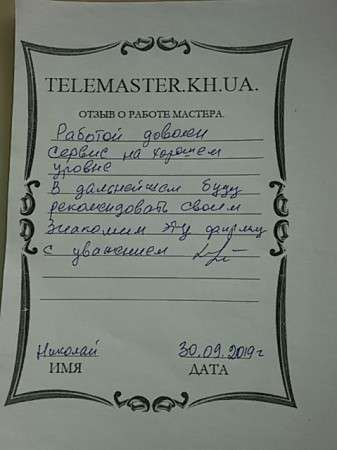 TELEMASTER.KH.UA.
ОТЗЫВ О РАБОТЕ МАСТЕРА.
Работой доволен
Сервис на хорошем
уровне
В дальнейшем буду
рекомендовать своим
знакомим эту фирму
с уважением
Николай 30.09.2019г
ИМЯ ДАТА